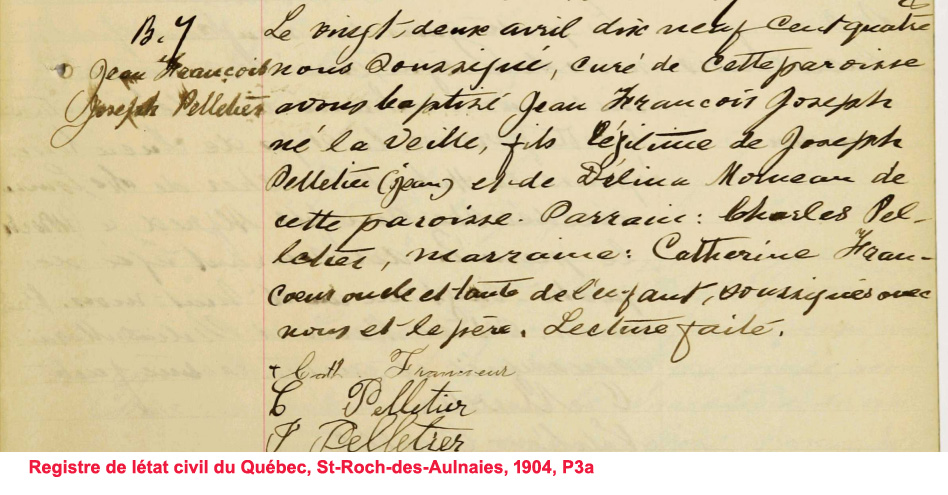 B. 7
Jean François
Joseph Pelletier
Le vingt-deux avril dix neuf cent quatre
nous soussigné, curé de cette paroisse
avons baptisé Jean François Joseph
né la veille, fils légitime de Joseph
Pelletier (Jean) et de Délina Morneau de
cette paroisse. Parrain: Charles Pel-
letier, marraine: Catherine Fran-
coeur oncle et tante de l'enfant, soussignés avec
nous et le père. Lecture faite.
+ Cath Francoeur
C Pelletier
J Pelletier
Registre de létat civil du Québec, St-Roch-des-Aulnaies, 1904, P3a